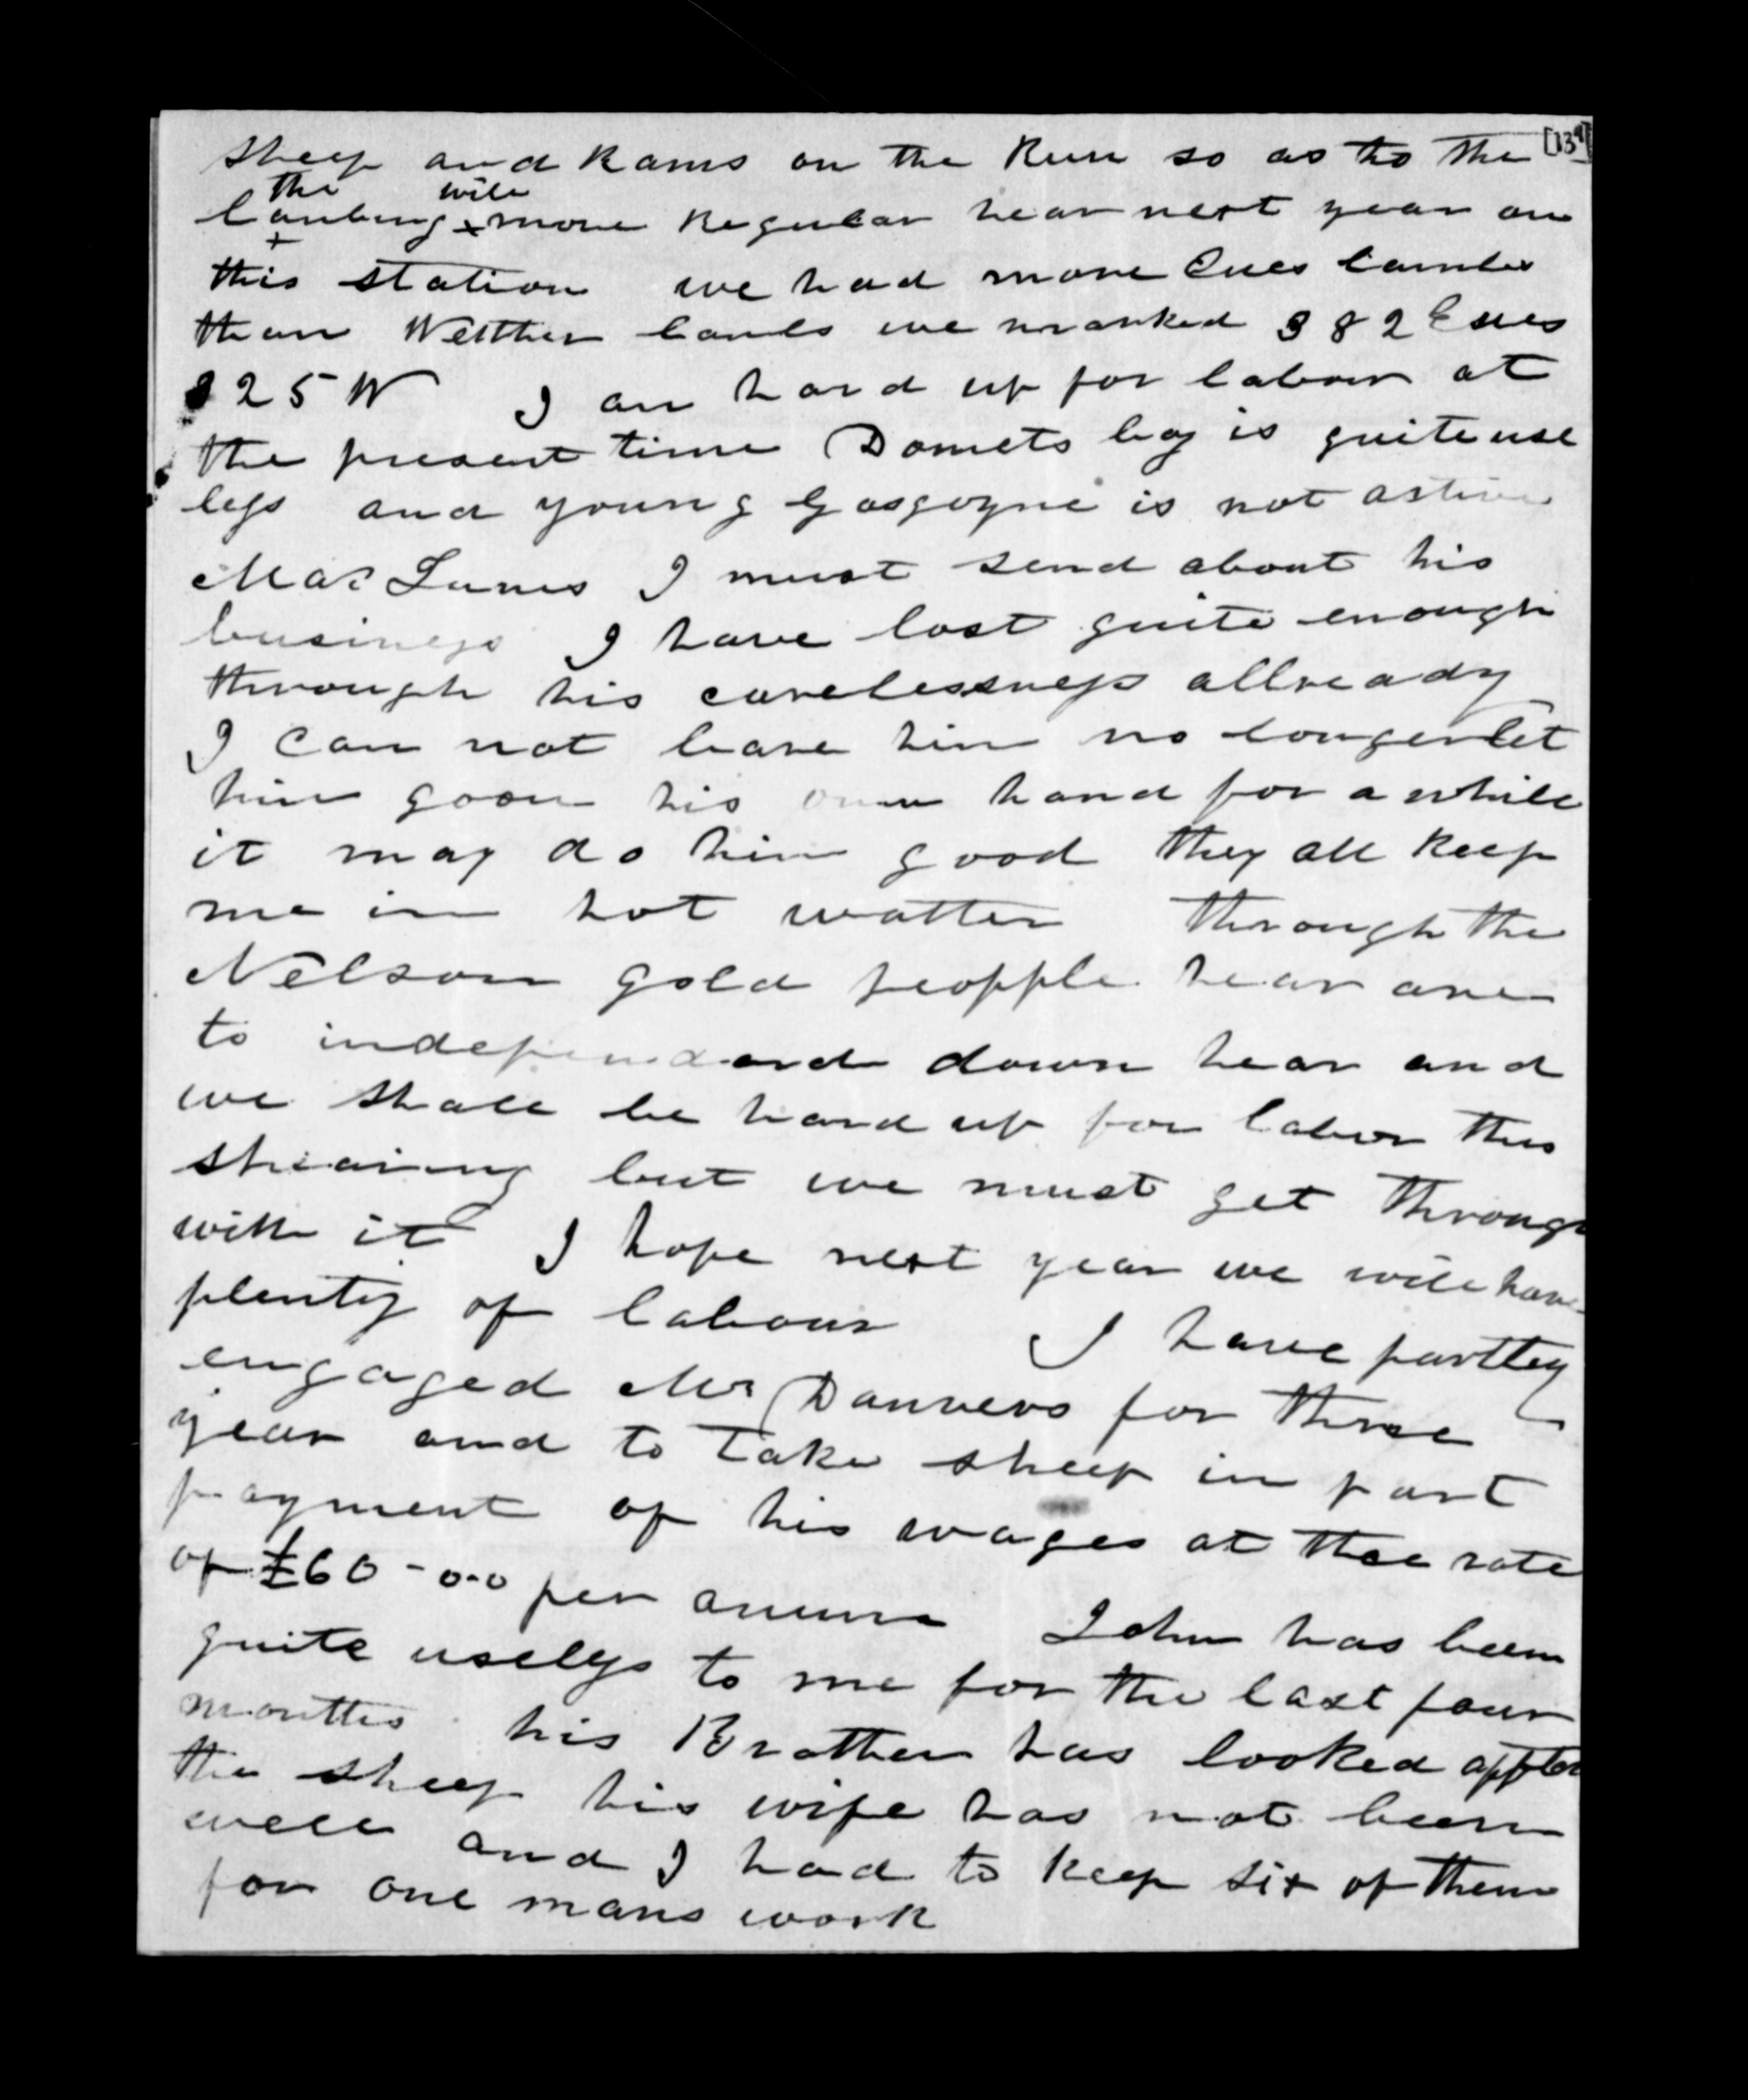 sheep and Rams on the Run so as to the [139]
the will
lambing x more Regular hear next year on
+
this station we had more Eues lambs
than Wetther lambs we marked 382 Eues
325 W I am hard up for labour at
the present time Domets boy is quite use
less and young Gasgoyne is not active
Mac Lunes I must send about his
business I have lost quite enough
through his carelessness allready
I can not leave him no longer let
him goon his own hand for a while
it may do him good they all keep
me in hot watter through the
Nelson gold peopple hear are
to independand down hear and
we shall be hard up for labor this
shearing but we must get through
with it I hope next year we will have
plenty of labour I have parttey
engaged Mr Danvers for three
year and to take sheep in part
payment of his wages at thee rate
of £60-0-0 per anum John has been
quite useless to me for the last four
months his Brother has looked affter
the sheep his wife has not been
well and I had to keep six of them
for one mans work